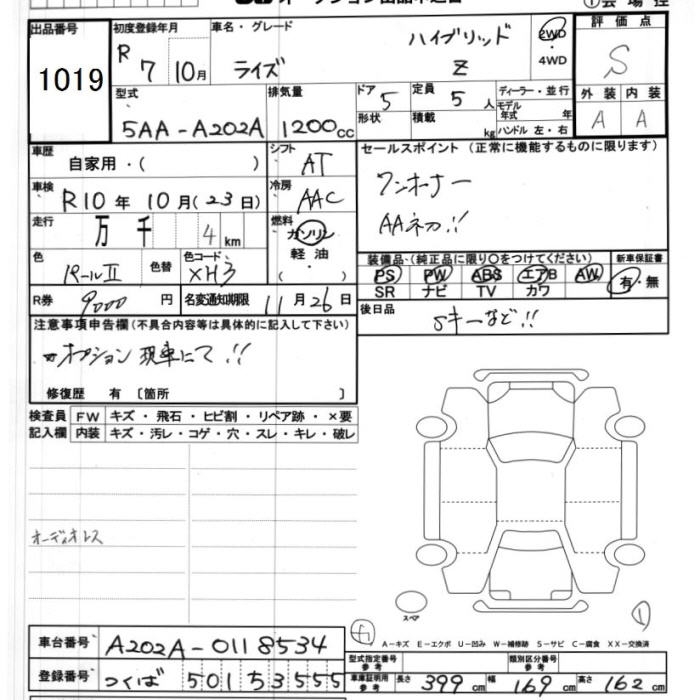 出品番号
1019
初度登録年月
R 7 10月
車名・グレード
ライズ
ハイブリッド
Z
2WD
・4WD
評価点
S
外装 内装
A A
型式
5AA-A202A
排気量
1200cc
ドア 5
形状
定員 5 人
積載 kg
ディーラー・並行
モデル年式 年
ハンドル 左・右
車歴
自家用・( )
シフト AT
車検 R10年10月(23日)
冷房 AAC
走行 万 千 4 km
燃料 ガソリン
軽油
・( )
色 パールⅡ
色替
色コード XH3
R券 9000 円
名変通知期限 11月26日
セールスポイント(正常に機能するものに限ります)
ワンオーナー
AAネカ!!
装備品・(純正品に限り○をつけてください)
PS PW ABS エアB AW
SR ナビ TV カワ
新車保証書
有・無
後日品
Sキーなど!!
注意事項申告欄(不具合内容等は具体的に記入して下さい)
オプション 現車にて!!
修復歴 有〔箇所 〕
検査員 FW キズ・飛石・ヒビ割・リペア跡・×要
記入欄 内装 キズ・汚レ・コゲ・穴・スレ・キレ・破レ
オーディオレス
スペア
A-キズ E-エクボ U-凹み W-補修跡 S-サビ C-腐食 XX-交換済
車台番号 A202A-0118534
登録番号 つくば 501 さ 3555
型式指定番号
参考
類別区分番号
参考
車庫証明用
参考
長さ 399 cm 幅 169 cm 高さ 162 cm